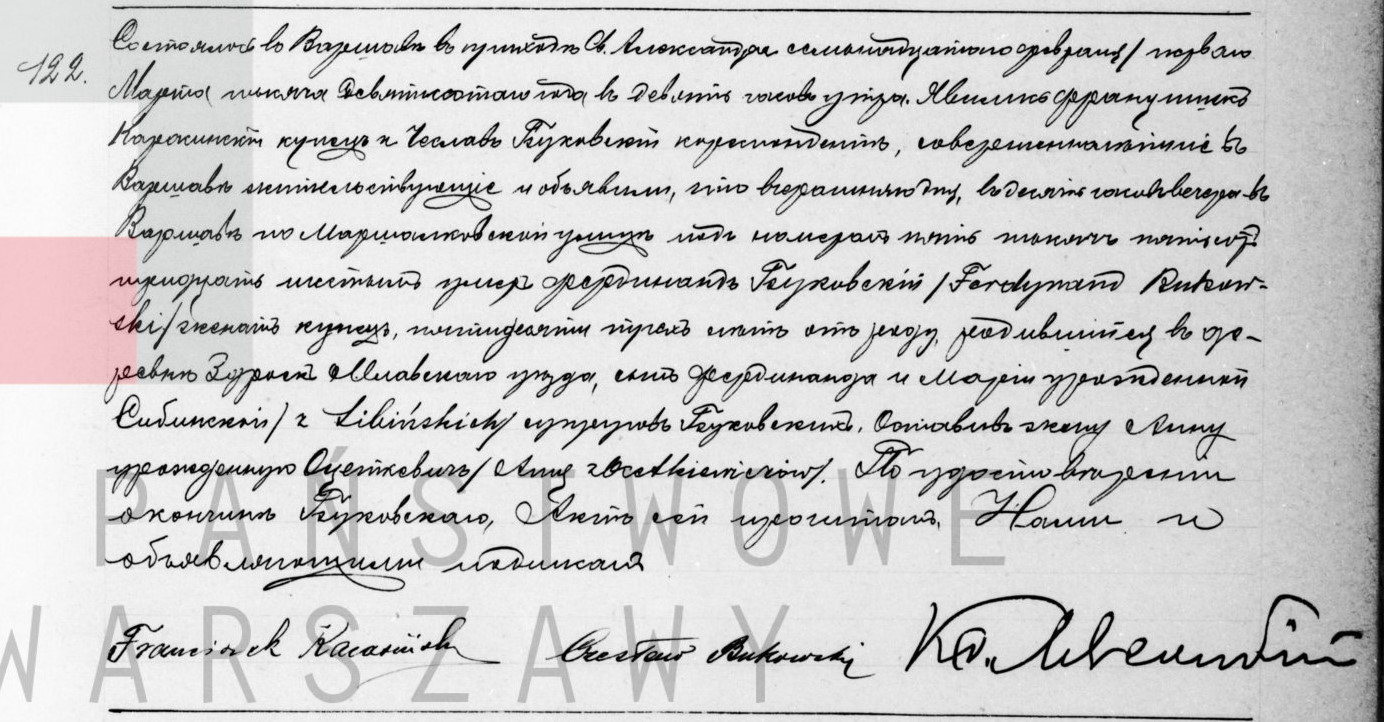 122.
Состоялось въ Варшавѣ въ приходѣ Св. Александра семьнадцатого февраля/ перваго
Марта тысяча девятисотаго года въ девять часовъ утра. Явились Францишекъ
купецъ и Чеславъ Буковскій кореспондентъ, совершеннолѣтніе въ
Варшавѣ жительствующіе и объявили, что вчерашняго дня, въ десять часовъ вечера въ
Варшавѣ по Маршалковской улицѣ подъ номеромъ пять тысячъ пятьсотъ
тридцать шестымъ умеръ Фердинандъ Буковскій /Ferdynand Bukow-
ski/ женатъ купецъ, пятидесяти трехъ лѣтъ отъ роду, родившійся въ де-
ревнѣ Млавскаго уѣзда, сынъ Фердинанда и Маріи урожденной
Сибинской/ z Sibińskich/ супруговъ Буковскихъ. Оставивъ жену Анну
урожденную Оцеткевичъ/ Annę z Ocetkiewiczów/. По удостовѣреніи
о кончинѣ Буковскаго, Актъ сей прочитанъ, Нами и
объявляющими подписанъ
Franciszek Czesław Bukowski